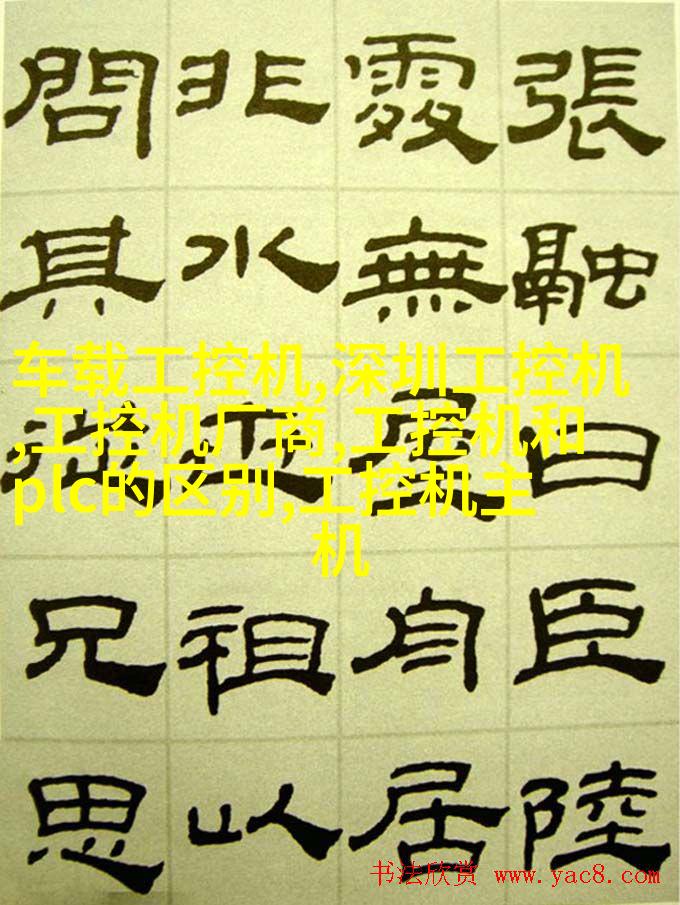 張融曰臣陸
處無屋舟居
非水祖以
問其從兄思
车载工控机,深圳工控机
,工控机厂商,工控机和
plc的区别,工控机主
机
书法欣赏 www.yac8.com